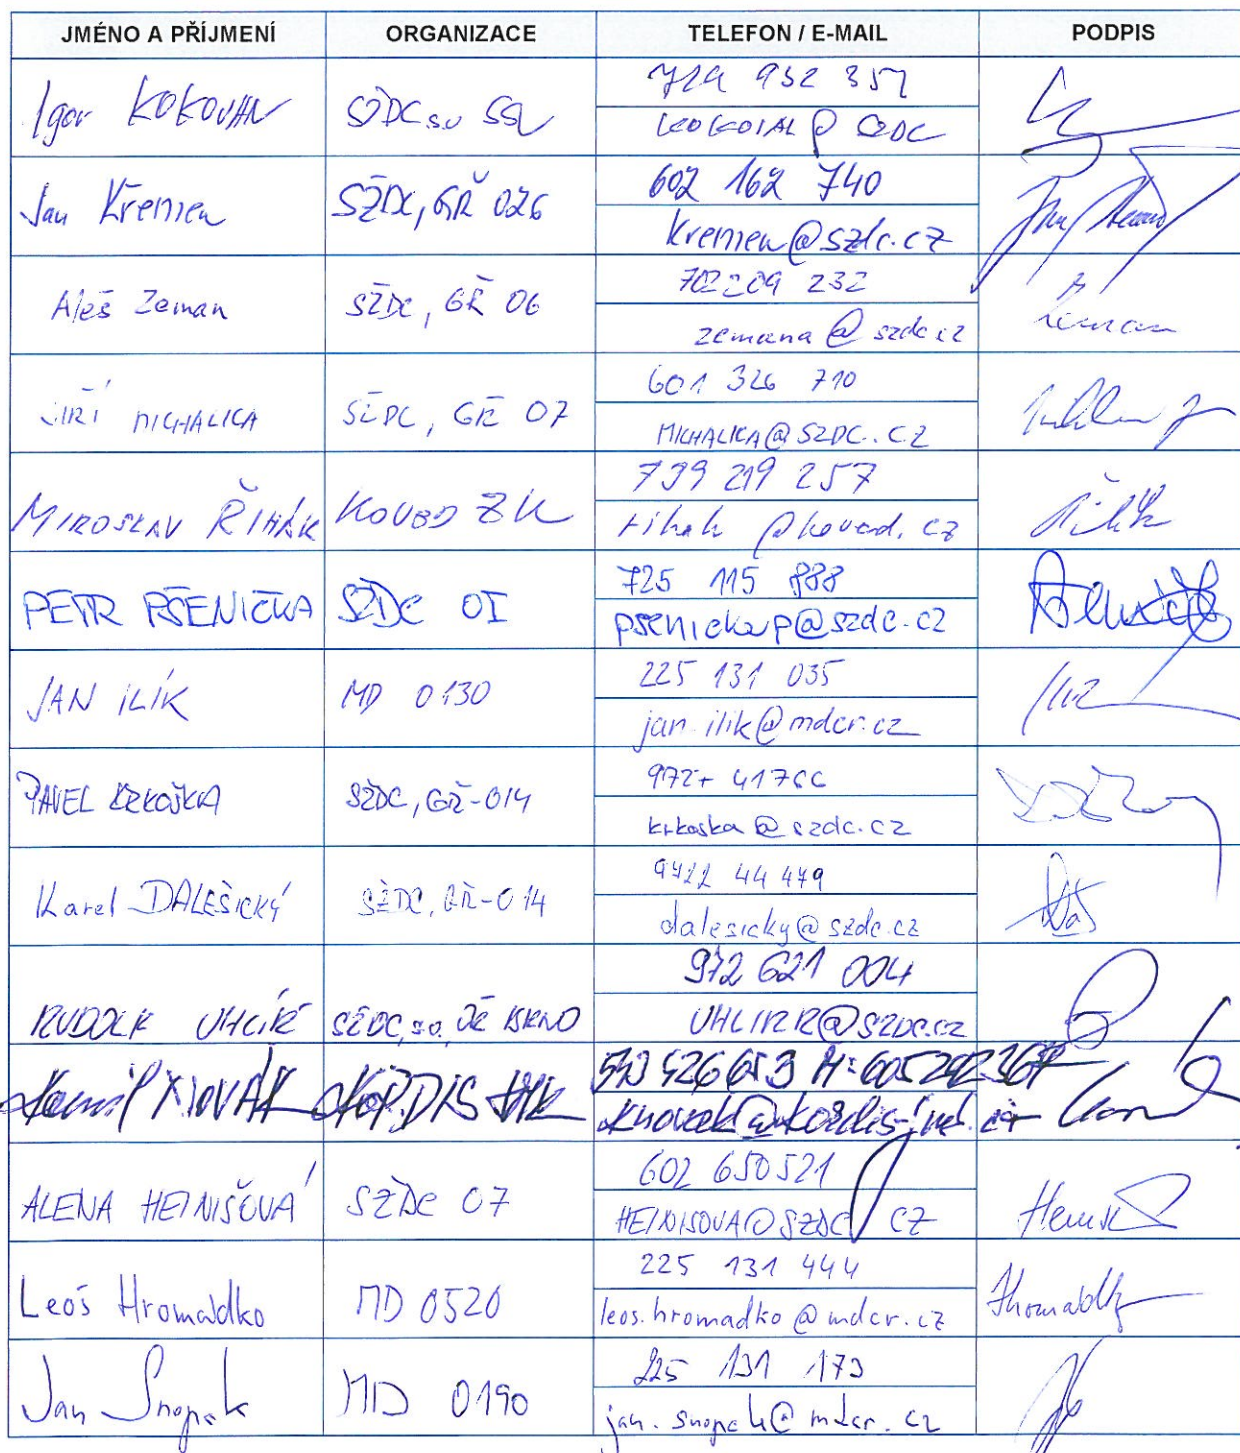 JMÉNO A PŘÍJMENÍ ORGANIZACE TELEFON / E-MAIL PODPIS
Igor KOKOVAN SŽDC s.o. 932
Jan Křemen SŽDC, GŘ 026 602 162 740
kremen@szdc.cz
Aleš Zeman SŽDC, GŘ 06 702 209 232
zemana@szdc.cz
Zeman
JIŘÍ MICHALICA SŽDC, GŘ 07 601 326 710
MICHALICA@SZDC.CZ
MIROSLAV ŘIHÁK KOVED ZK 739 219 257
rihak@koved.cz
PETR PŠENIČKA SŽDC OI 725 115 888
psenickap@szdc.cz
JAN ILÍK MD 0130 225 131 035
jan.ilik@mdcr.cz
PAVEL KRKOŠKA SŽDC, GŘ-014 972+ 41766
krkoska@szdc.cz
Karel DALEŠICKÝ SŽDC, GŘ-014 9722 44 479
dalesicky@szdc.cz
RUDOLF UHLÍŘ SŽDC, s.o. BRNO 972 621 004
UHLIRR@SZDC.CZ
Kamil NOVÁK KORDIS JMK 426 653
knovak@kordis-jmk.cz
ALENA HEINIŠOVÁ SŽDC 07 602 650 521
HEINISOVA@SZDC CZ
Leoš Hromádko MD 0520 225 131 444
leos.hromadko@mdcr.cz
Hromádko
Jan Snopek MD 0190 225 131 173
jan.snopek@mdcr.cz